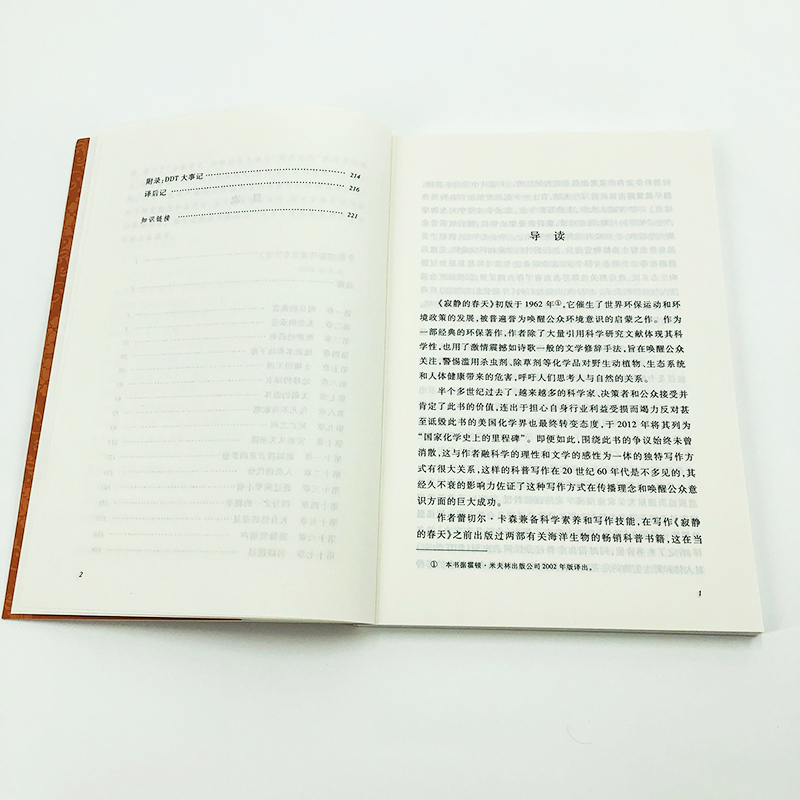 附录：DDT 大事记 214
译后记 216
知识链接 221
2
导 读
《寂静的春天》初版于 1962 年①，它催生了世界环保运动和环
境政策的发展，被普遍誉为唤醒公众环境意识的启蒙之作。作为
一部经典的环保著作，作者除了大量引用科学研究文献体现其科
学性，也用了激情震撼如诗歌一般的文学修辞手法，旨在唤醒公众
关注，警惕滥用杀虫剂、除草剂等化学品对野生动植物、生态系统
和人体健康带来的危害，呼吁人们思考人与自然的关系。
半个多世纪过去了，越来越多的科学家、决策者和公众接受并
肯定了此书的价值，连出于担心自身行业利益受损而竭力反对甚
至诋毁此书的美国化学界也最终转变态度，于 2012 年将其列为
“国家化学史上的里程碑”。即便如此，围绕此书的争议始终未曾
消散，这与作者融科学的理性和文学的感性为一体的独特写作方
式有很大关系，这样的科普写作在 20 世纪 60 年代是不多见的，其
经久不衰的影响力佐证了这种写作方式在传播理念和唤醒公众意
识方面的巨大成功。
作者蕾切尔·卡森兼备科学素养和写作技能，在写作《寂静
的春天》之前出版过两部有关海洋生物的畅销科普书籍，这在当
① 本书据霍顿·米夫林出版公司 2002 年版译出。
1